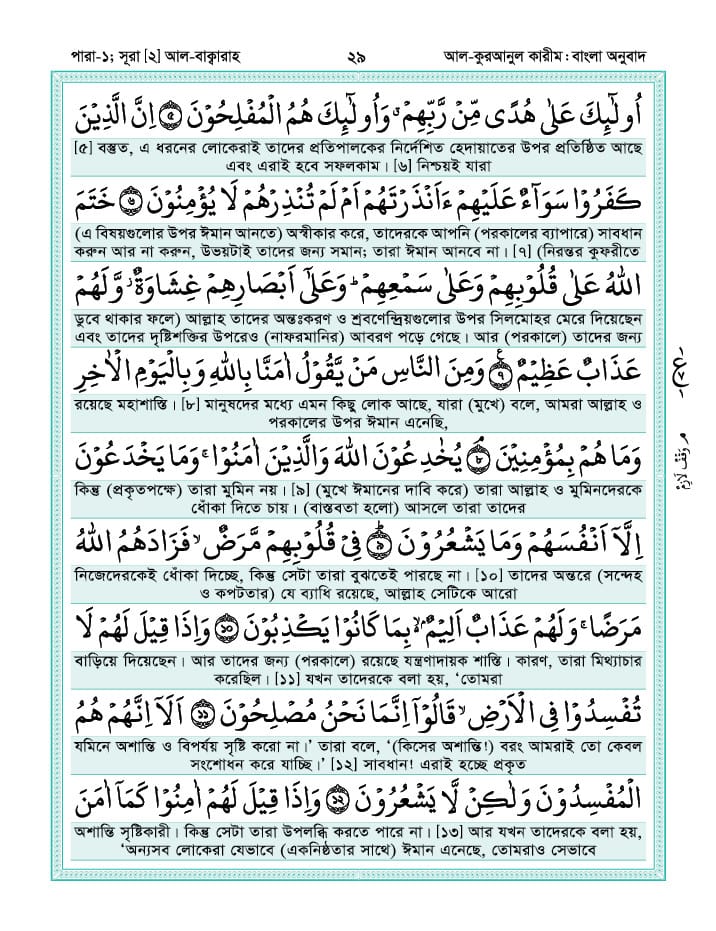 পারা-১; সূরা [২] আল-বাক্বারাহ ২৯ আল-কুরআনুল কারীম : বাংলা অনুবাদ
اُولٰٓئِكَ عَلٰى هُدًى مِّنْ رَّبِّهِمْ ۙ وَاُولٰٓئِكَ هُمُ الْمُفْلِحُوْنَ ۝٥ اِنَّ الَّذِيْنَ
[৫] বস্তুত, এ ধরনের লোকেরাই তাদের প্রতিপালকের নির্দেশিত হেদায়াতের উপর প্রতিষ্ঠিত আছে
এবং এরাই হবে সফলকাম। [৬] নিশ্চয়ই যারা
كَفَرُوْا سَوَآءٌ عَلَيْهِمْ ءَاَنْذَرْتَهُمْ اَمْ لَمْ تُنْذِرْهُمْ لَا يُؤْمِنُوْنَ ۝٦ خَتَمَ
(এ বিষয়গুলোর উপর ঈমান আনতে) অস্বীকার করে, তাদেরকে আপনি (পরকালের ব্যাপারে) সাবধান
করুন আর না করুন, উভয়টাই তাদের জন্য সমান; তারা ঈমান আনবে না। [৭] (নিরন্তর কুফরীতে
اللّٰهُ عَلٰى قُلُوْبِهِمْ وَعَلٰى سَمْعِهِمْ ؕ وَعَلٰٓى اَبْصَارِهِمْ غِشَاوَةٌ ؗ وَّلَهُمْ
ডুবে থাকার ফলে) আল্লাহ তাদের অন্তঃকরণ ও শ্রবণেন্দ্রিয়গুলোর উপর সিলমোহর মেরে দিয়েছেন
এবং তাদের দৃষ্টিশক্তির উপরেও (নাফরমানির) আবরণ পড়ে গেছে। আর (পরকালে) তাদের জন্য
عَذَابٌ عَظِيْمٌ ۝٧ وَمِنَ النَّاسِ مَنْ يَّقُوْلُ اٰمَنَّا بِاللّٰهِ وَبِالْيَوْمِ الْاٰخِرِ
রয়েছে মহাশাস্তি। [৮] মানুষদের মধ্যে এমন কিছু লোক আছে, যারা (মুখে) বলে, আমরা আল্লাহ ও
পরকালের উপর ঈমান এনেছি,
وَمَا هُمْ بِمُؤْمِنِيْنَ ۝٨ يُخٰدِعُوْنَ اللّٰهَ وَالَّذِيْنَ اٰمَنُوْا ۚ وَمَا يَخْدَعُوْنَ
م وَقْف لَازِم
কিন্তু (প্রকৃতপক্ষে) তারা মুমিন নয়। [৯] (মুখে ঈমানের দাবি করে) তারা আল্লাহ ও মুমিনদেরকে
ধোঁকা দিতে চায়। (বাস্তবতা হলো) আসলে তারা তাদের
اِلَّاۤ اَنْفُسَهُمْ وَمَا يَشْعُرُوْنَ ۝٩ فِيْ قُلُوْبِهِمْ مَّرَضٌ ۙ فَزَادَهُمُ اللّٰهُ
নিজেদেরকেই ধোঁকা দিচ্ছে, কিন্তু সেটা তারা বুঝতেই পারছে না। [১০] তাদের অন্তরে (সন্দেহ
ও কপটতার) যে ব্যাধি রয়েছে, আল্লাহ সেটিকে আরো
مَرَضًا ۚ وَلَهُمْ عَذَابٌ اَلِيْمٌ ۢ ۙ بِمَا كَانُوْا يَكْذِبُوْنَ ۝١٠ وَاِذَا قِيْلَ لَهُمْ لَا
বাড়িয়ে দিয়েছেন। আর তাদের জন্য (পরকালে) রয়েছে যন্ত্রণাদায়ক শাস্তি। কারণ, তারা মিথ্যাচার
করেছিল। [১১] যখন তাদেরকে বলা হয়, ‘তোমরা
تُفْسِدُوْا فِى الْاَرْضِ ۙ قَالُوْۤا اِنَّمَا نَحْنُ مُصْلِحُوْنَ ۝١١ اَلَاۤ اِنَّهُمْ هُمُ
যমিনে অশান্তি ও বিপর্যয় সৃষ্টি করো না।’ তারা বলে, ‘(কিসের অশান্তি!) বরং আমরাই তো কেবল
সংশোধন করে যাচ্ছি।’ [১২] সাবধান! এরাই হচ্ছে প্রকৃত
الْمُفْسِدُوْنَ وَلٰكِنْ لَّا يَشْعُرُوْنَ ۝١٢ وَاِذَا قِيْلَ لَهُمْ اٰمِنُوْا كَمَاۤ اٰمَنَ
অশান্তি সৃষ্টিকারী। কিন্তু সেটা তারা উপলব্ধি করতে পারে না। [১৩] আর যখন তাদেরকে বলা হয়,
‘অন্যসব লোকেরা যেভাবে (একনিষ্ঠতার সাথে) ঈমান এনেছে, তোমরাও সেভাবে